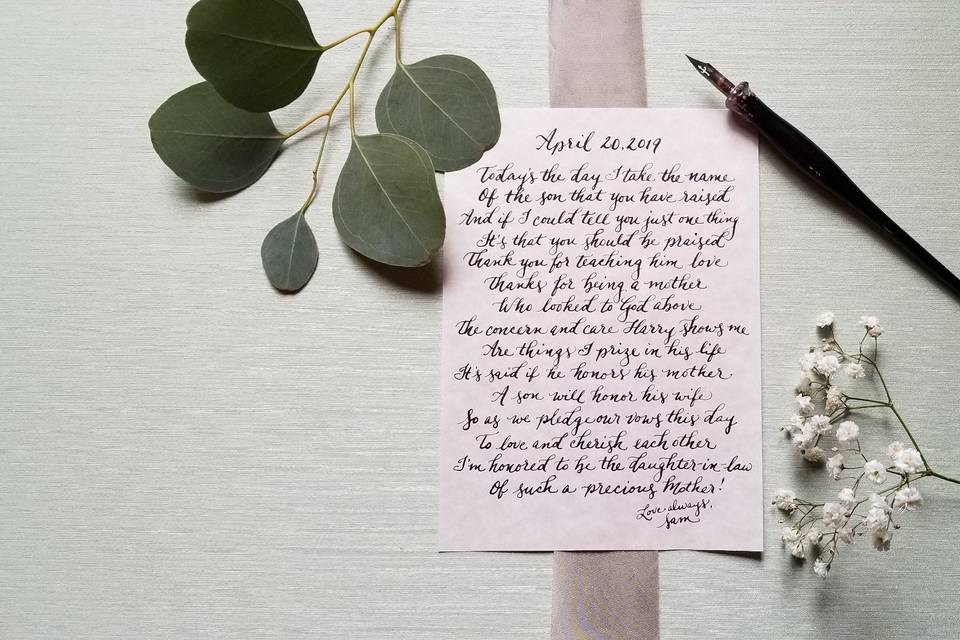 April 20, 2019
Today's the day I take the name
Of the son that you have raised
And if I could tell you just one thing
It's that you should be praised
Thank you for teaching him love
Thanks for being a mother
Who looked to God above
The concern and care Harry shows me
Are things I prize in his life
It's said if he honors his mother
A son will honor his wife
So as we pledge our vows this day
To love and cherish each other
I'm honored to be the daughter-in-law
Of such a precious Mother!
Love always,
Sam